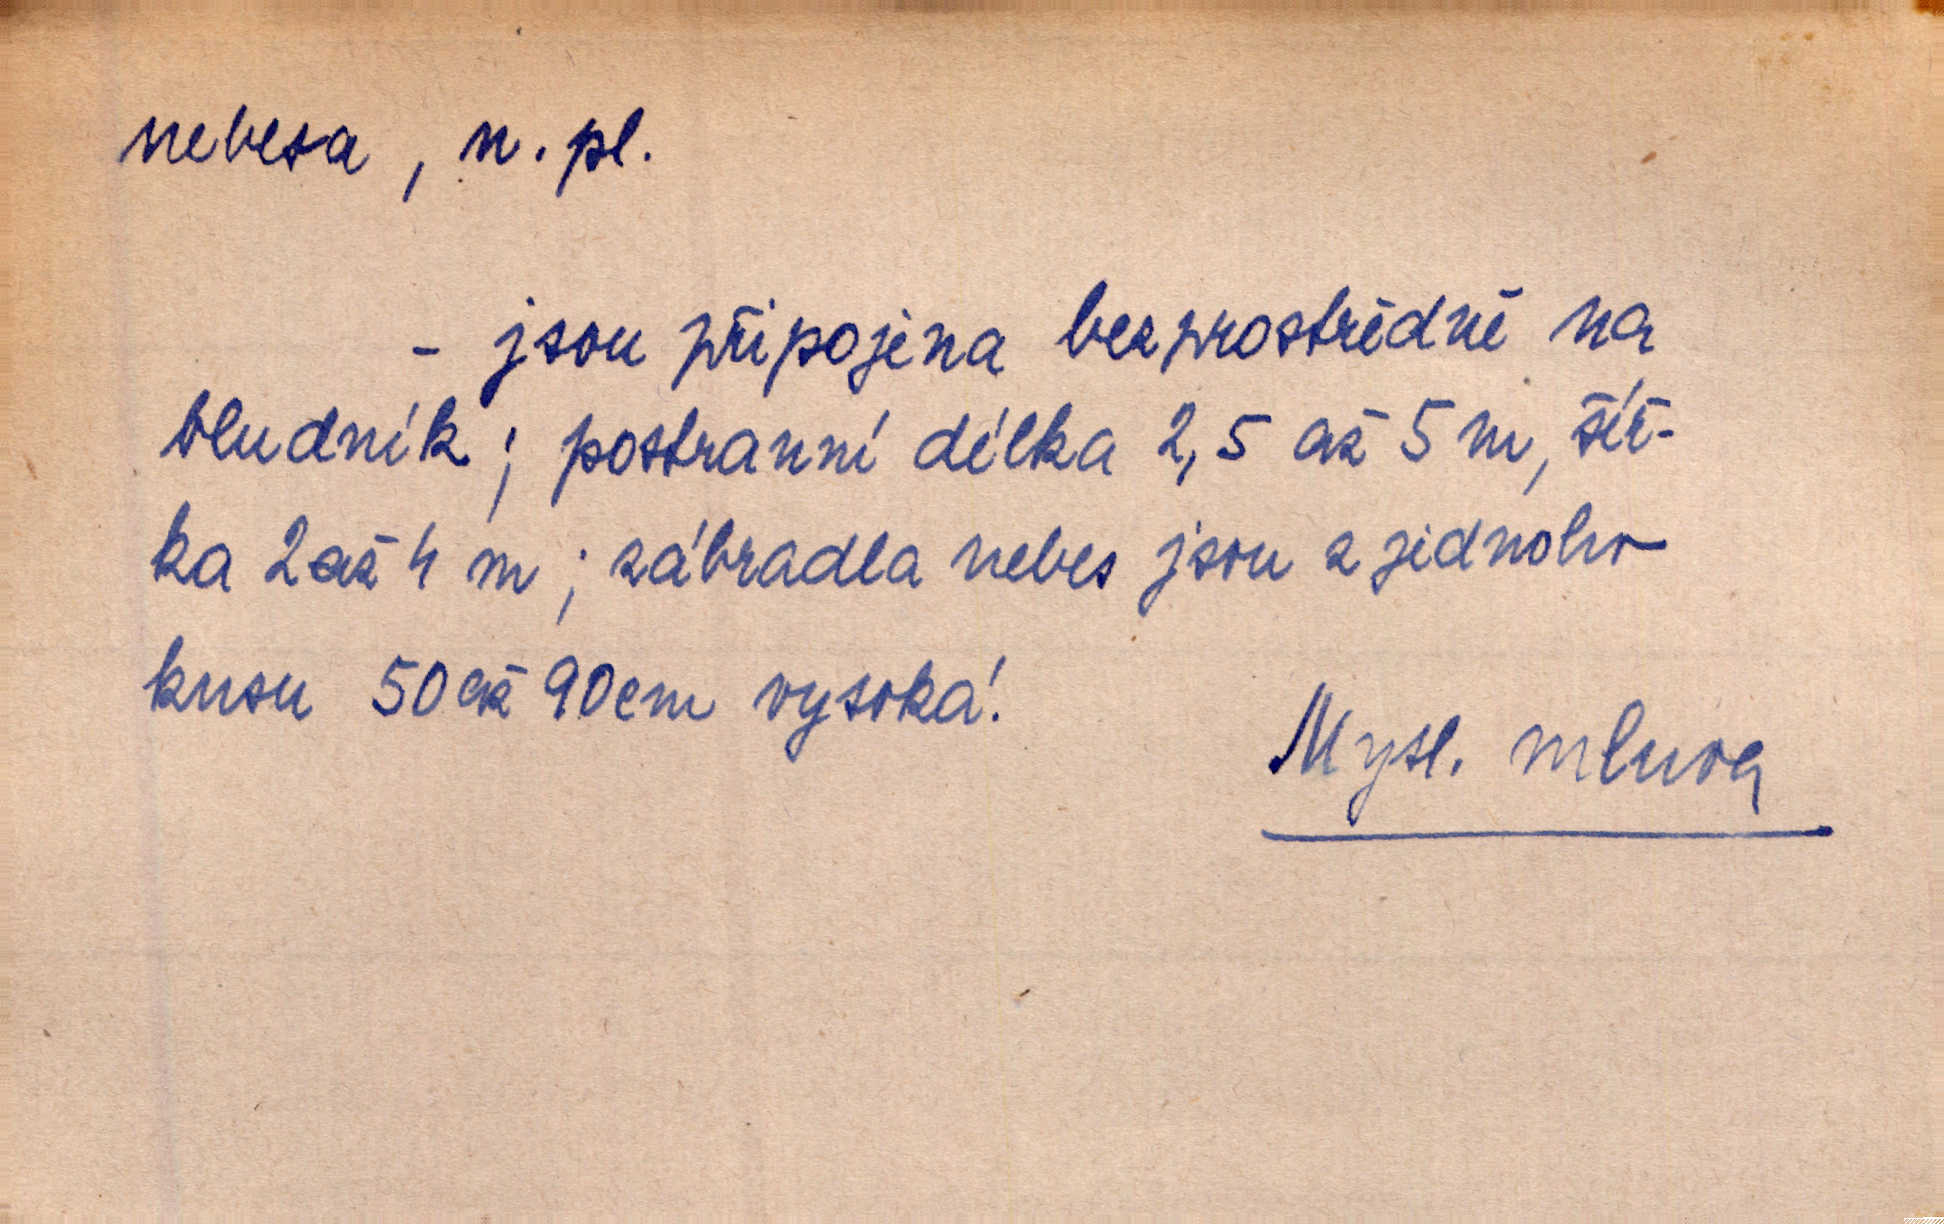 nebesa, n. pl.
- jsou připojena bezprostředně na
bludník; postranní délka 2,5 až 5 m, šíř-
ka 2 až 4 m; zábradla nebes jsou z jednoho
kusu 50 až 90 cm vysoká.
Mysl. mluva